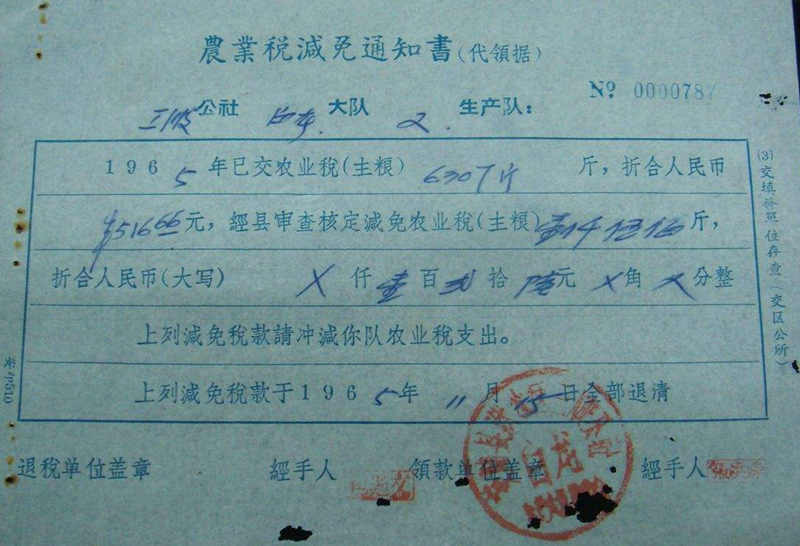 農業税減免通知書(代領据)
№ 0000787
公社 大队 2. 生产队:
1965年已交农业税(主粮) 6307斤 斤,折合人民币
¥516.66元,經县审查核定減免农业税(主粮) 壹仟 斤,
折合人民币(大写) X仟壹百弍拾陆元X角X分整
上列減免税款請冲減你队农业税支出。
上列減免税款于1965年11月15日全部退清
退税单位盖章 經手人 領款单位盖章 經手人
(3)交填 位存查(交区公所)